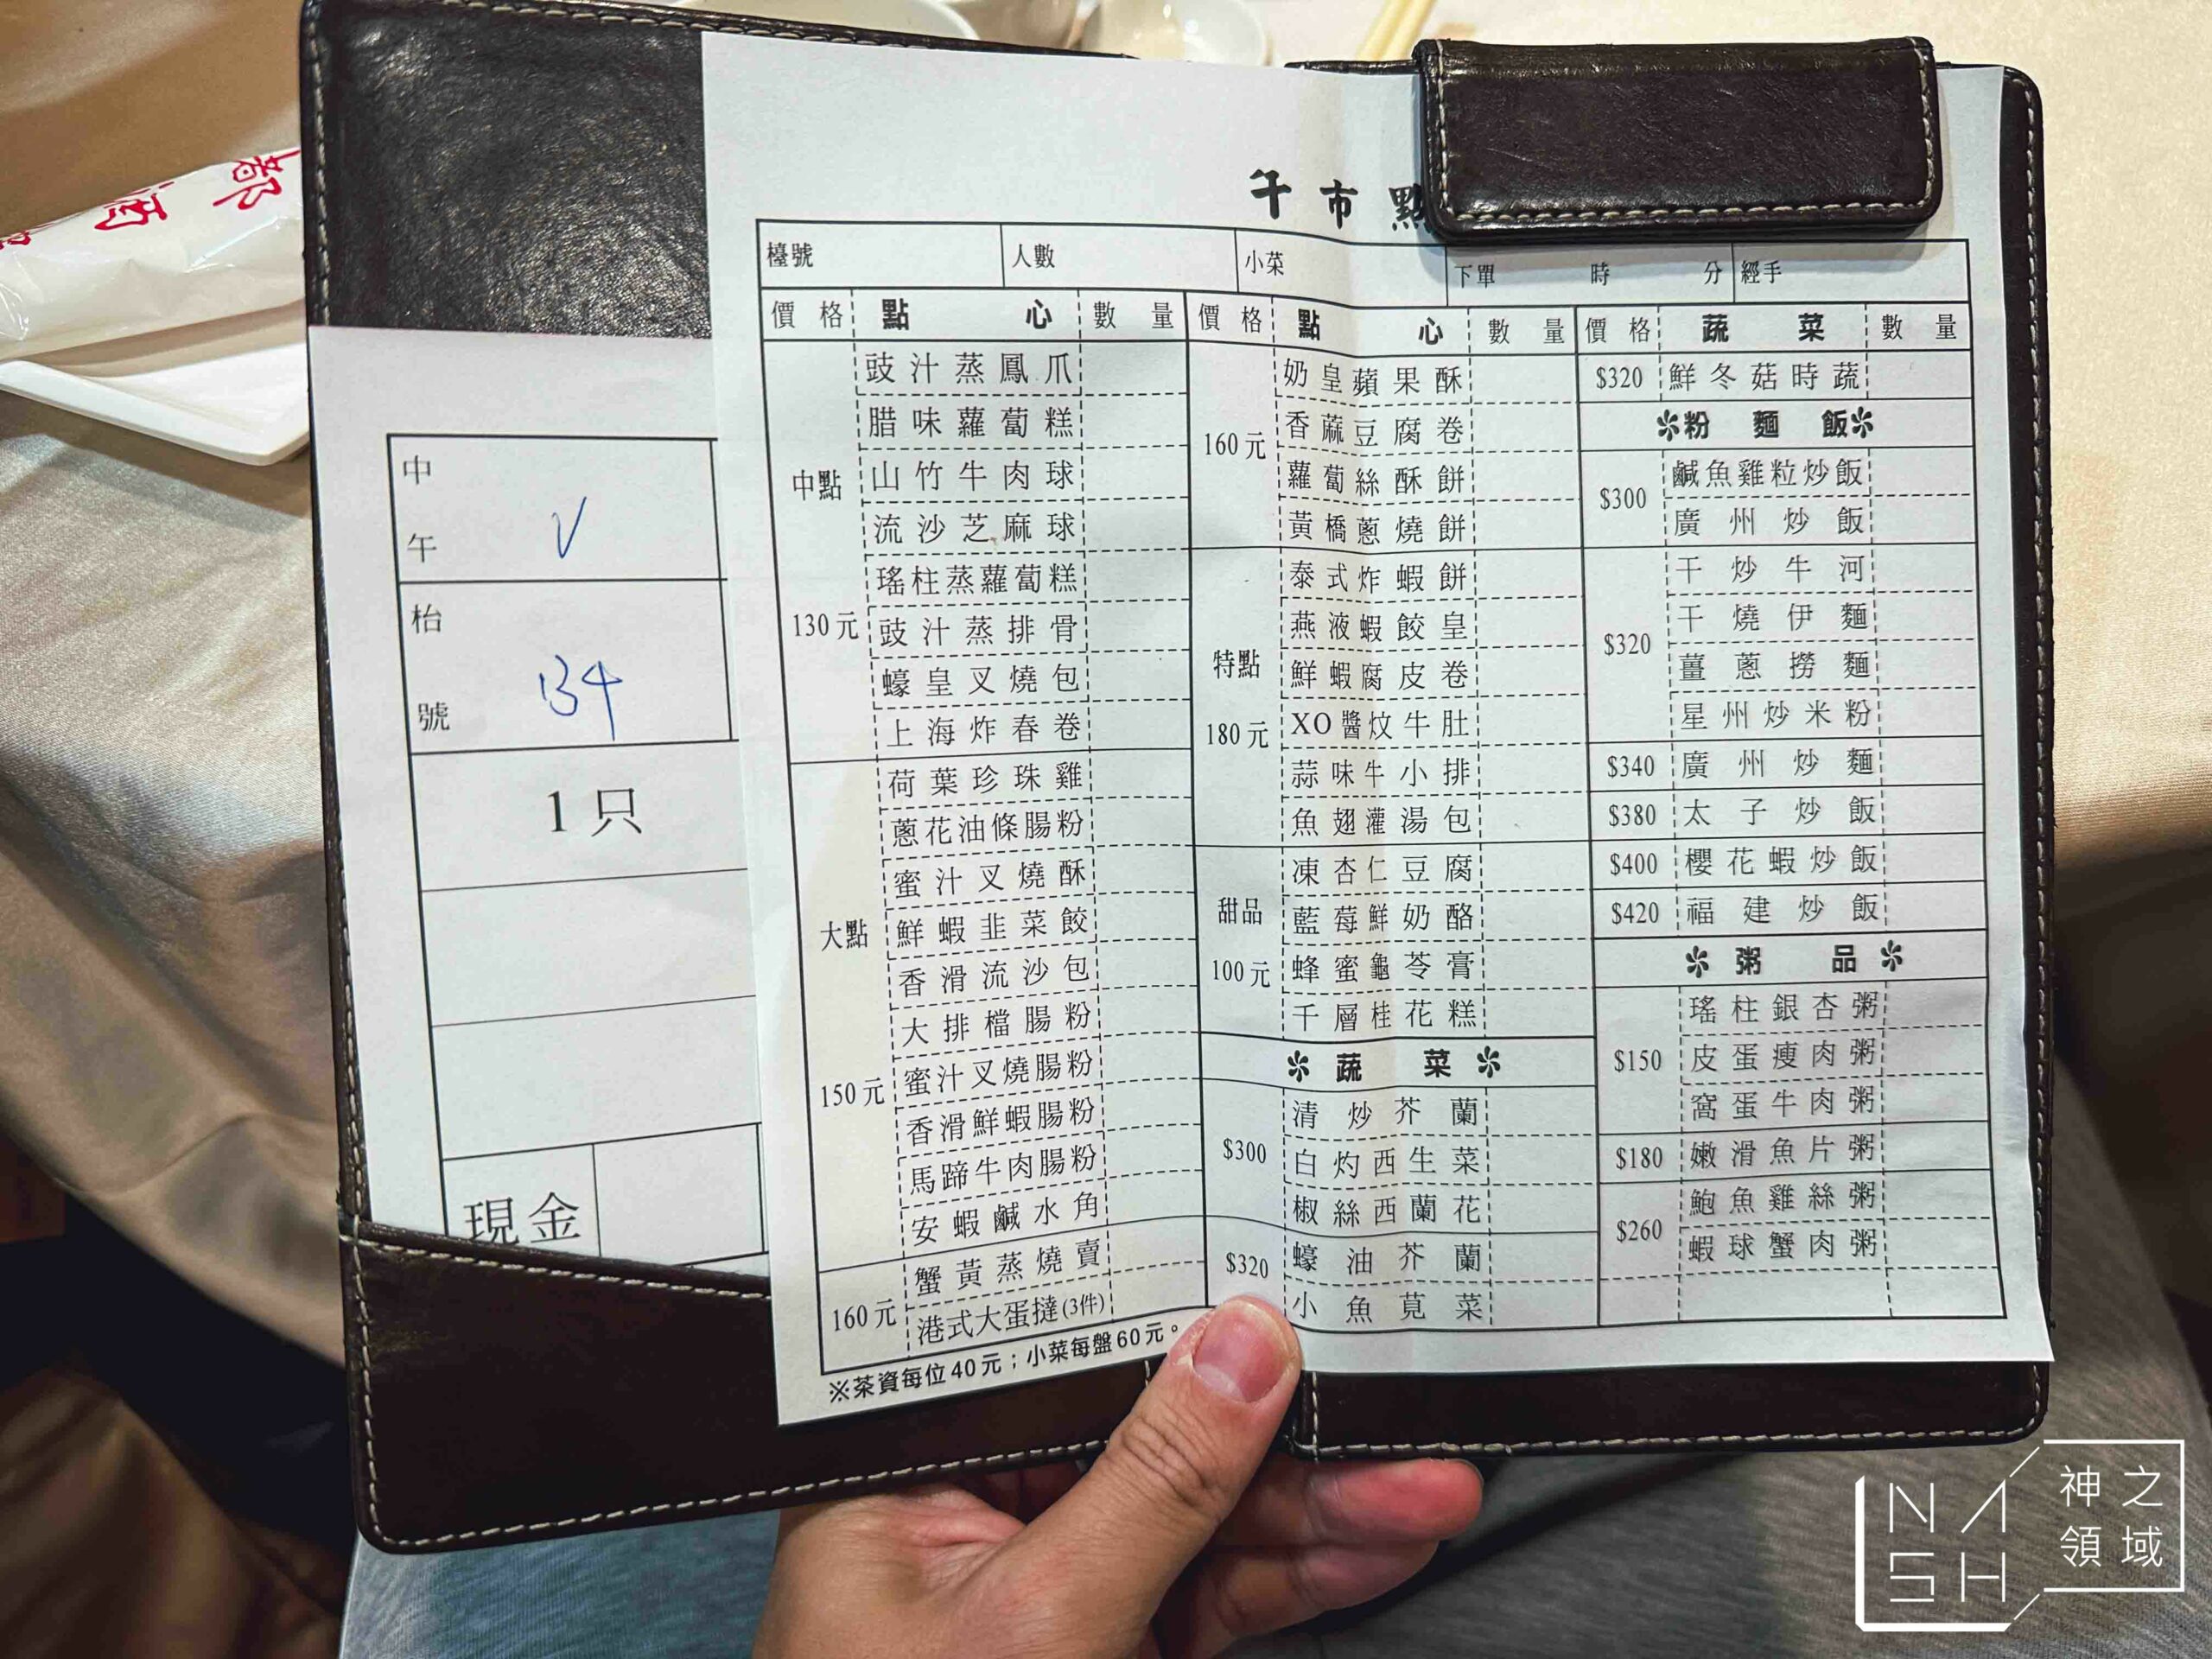 都
酒
中
午
V
枱
號
134
1只
現金
午市點
檯號 人數 小菜 下單 時 分 經手
價格 點心 數量 價格 點心 數量 價格 蔬菜 數量
中點
130元
豉汁蒸鳳爪
腊味蘿蔔糕
山竹牛肉球
流沙芝麻球
瑤柱蒸蘿蔔糕
豉汁蒸排骨
蠔皇叉燒包
上海炸春卷
大點
150元
荷葉珍珠雞
蔥花油條腸粉
蜜汁叉燒酥
鮮蝦韭菜餃
香滑流沙包
大排檔腸粉
蜜汁叉燒腸粉
香滑鮮蝦腸粉
馬蹄牛肉腸粉
安蝦鹹水角
160元
蟹黃蒸燒賣
港式大蛋撻(3件)
※茶資每位40元；小菜每盤60元。
160元
奶皇蘋果酥
香蔴豆腐卷
蘿蔔絲酥餅
黃橋蔥燒餅
特點
180元
泰式炸蝦餅
燕液蝦餃皇
鮮蝦腐皮卷
XO醬炆牛肚
蒜味牛小排
魚翅灌湯包
甜品
100元
凍杏仁豆腐
藍莓鮮奶酪
蜂蜜龜苓膏
千層桂花糕
蔬菜
$300
清炒芥蘭
白灼西生菜
椒絲西蘭花
$320
蠔油芥蘭
小魚莧菜
$320 鮮冬菇時蔬
粉麵飯
$300
鹹魚雞粒炒飯
廣州炒飯
$320
干炒牛河
干燒伊麵
薑蔥撈麵
星州炒米粉
$340 廣州炒麵
$380 太子炒飯
$400 櫻花蝦炒飯
$420 福建炒飯
粥品
$150
瑤柱銀杏粥
皮蛋瘦肉粥
窩蛋牛肉粥
$180 嫩滑魚片粥
$260
鮑魚雞絲粥
蝦球蟹肉粥
NASH
神之
領域